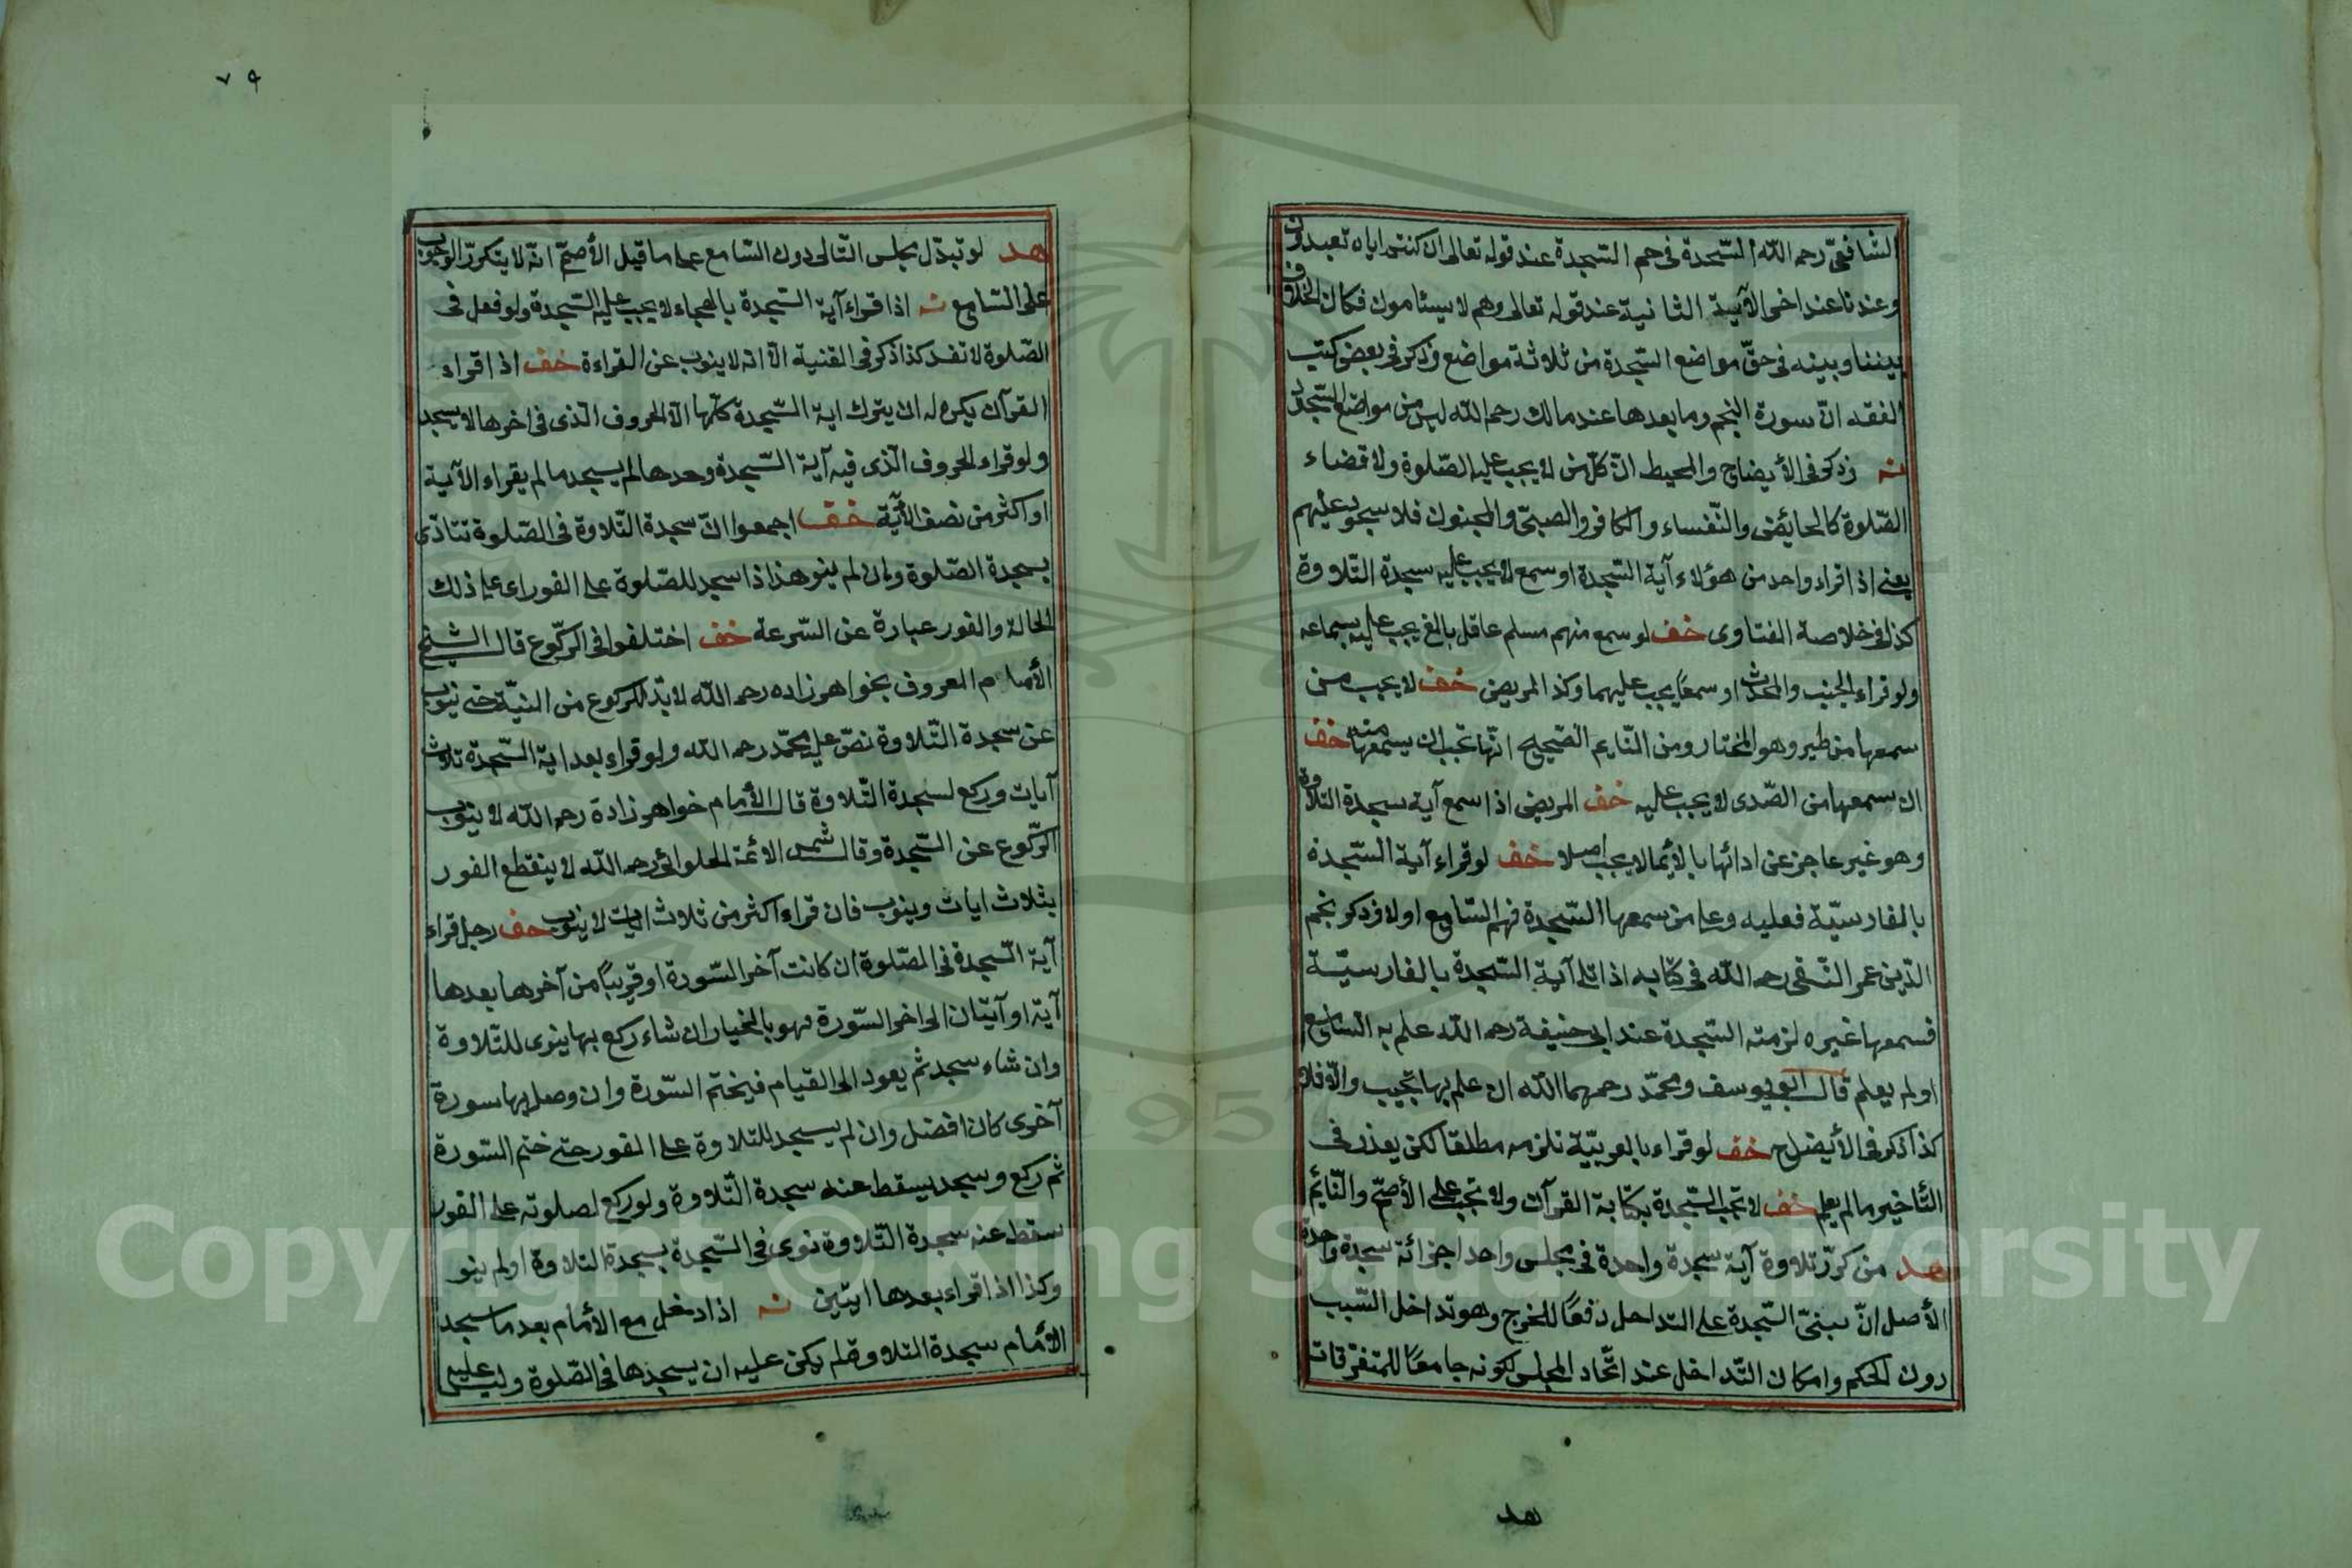 الشافعىّ رحمه الله السّجدة فى حم السّجدة عند قوله تعالى ان كنتم اياه تعبدون
وعندنا عند اخر الآية الثانية عند قوله تعالى وهم لا يسئامون فكان الخلاف
بيننا وبينه فى حقّ مواضع السّجدة من ثلاثة مواضع وذكر فى بعض كتب
الفقه انّ سورة النجم وما بعدها عند مالك رحمه الله ليس من مواضع السّجدة
نه وذكر فى الأيضاح والمحيط انّ كلّ من لا يجب عليه الصّلوة ولا قضاء
الصّلوة كالحائض والنّفساء والكافر والصبىّ والمجنون فلا سجود عليهم
يعنى اذا قراء واحد من هؤلاء آية السّجدة او سمع لا يجب عليه سجدة التّلاوة
كذا فى خلاصة الفتاوى خف لو سمع منهم مسلم عاقل بالغ يجب عليه بسماعه
ولو قراء الجنب والمحدث او سمعا يجب عليهما وكذا المريض خف لا يجب من
سمعها من طير وهو المختار ومن النّايم الصّحيح انّها تجب ان يسمعها منه خف
ان سمعها من الصّدى لا يجب عليه خف المريض اذا سمع آية سجدة التلاوة
وهو غير عاجز عن ادائها بالأيما لا يجب اصلا خف لو قراء آية السّجدة
بالفارسيّة فعليه وعلى من سمعها السّجدة فهم السّامع اولا وذكر نجم
الدّين عمر النّسفى رحمه الله فى كتابه اذا تلى آية السّجدة بالفارسيّة
فسمعها غيره لزمته السّجدة عند ابى حنيفة رحمه الله علم به السّامع
اولم يعلم قال ابو يوسف ومحمّد رحمهما الله ان علم بها تجب والّا فلا
كذا ذكر فى الأيضاح خف لو قراء بالعربيّة تلزمه مطلقا لكن يعذر فى
التّاخير ما لم يعلم خف لا تجب السّجدة بكتابة القرآن ولا تجب على الأصمّ والنّائم
هد من كرّر تلاوة آية سجدة واحدة فى مجلس واحد اجزائه سجدة واحدة
الأصل انّ مبنىّ السّجدة على التداخل دفعًا للحرج وهو تداخل السّبب
دون الحكم وامكان التّداخل عند اتّحاد المجلس لكونه جامعًا للمتفرّقات
هد
٧٩
هد لو تبدّل مجلس التّالى دون السّامع على ما قيل الأصحّ انّه لا يتكرّر الوجوب
على السّامع نه اذا قراء آية السّجدة بالهجاء لا يجب عليه السّجدة ولو فعل فى
الصّلوة لا تفسد كذا ذكر فى القنية الّا انّه لا ينوب عن القراءة خف اذا قراء
القرآن يكره له ان يترك اية السّجدة كلّها الّا الحروف الّذى فى اخرها لا يسجد
ولو قراء الحروف الّذى فيه آية السّجدة وحدها لم يسجد ما لم يقراء الآية
او اكثر من نصف الأيّة خف اجمعوا انّ سجدة التّلاوة فى الصّلوة تتاذّى
بسجدة الصّلوة وان لم ينو هذا اذا سجد للصّلوة على الفور اء على ذلك
الحالة والفور عبارة عن السّرعة خف اختلفوا فى الرّكوع قال الشيخ
الأمام المعروف بخواهر زاده رحمه الله لا بدّ للركوع من النيّة حتى ينوب
عن سجدة التّلاوة نصّ عليه محمّد رحمه الله ولو قراء بعد اية السّجدة ثلاث
آيات وركع لسجدة التّلاوة قال الأمام خواهر زادة رحمه الله لا ينوب
الرّكوع عن السّجدة وقال شمس الائمّة الحلوائى رحمه الله لا ينقطع الفور
بثلاث ايات وينوب فان قراء اكثر من ثلاث ايات لا ينوب خف رجل قراء
آية السّجدة فى الصّلوة ان كانت آخر السّورة او قريبًا من آخرها بعدها
آية او آيتان الى اخر السّورة فهو بالخيار ان شاء ركع بها ينوى للتّلاوة
وان شاء سجد ثم يعود الى القيام فيختم السّورة وان وصل بها سورة
آخرى كان افضل وان لم يسجد للتلاوة على الفور حتى ختم السّورة
ثم ركع وسجد يسقط عنه سجدة التّلاوة ولو ركع لصلوته على الفور
سقط عنه سجدة التّلاوة نوى فى السّجدة بسجدة التلاوة او لم ينو
وكذا اذا قراء بعدها ايتين نه اذا دخل مع الأمام بعد ما سجد
الأمام سجدة التلاوة لم يكن عليه ان يسجدها فى الصّلوة وليس عليه
Copyright © King Saud University
1957